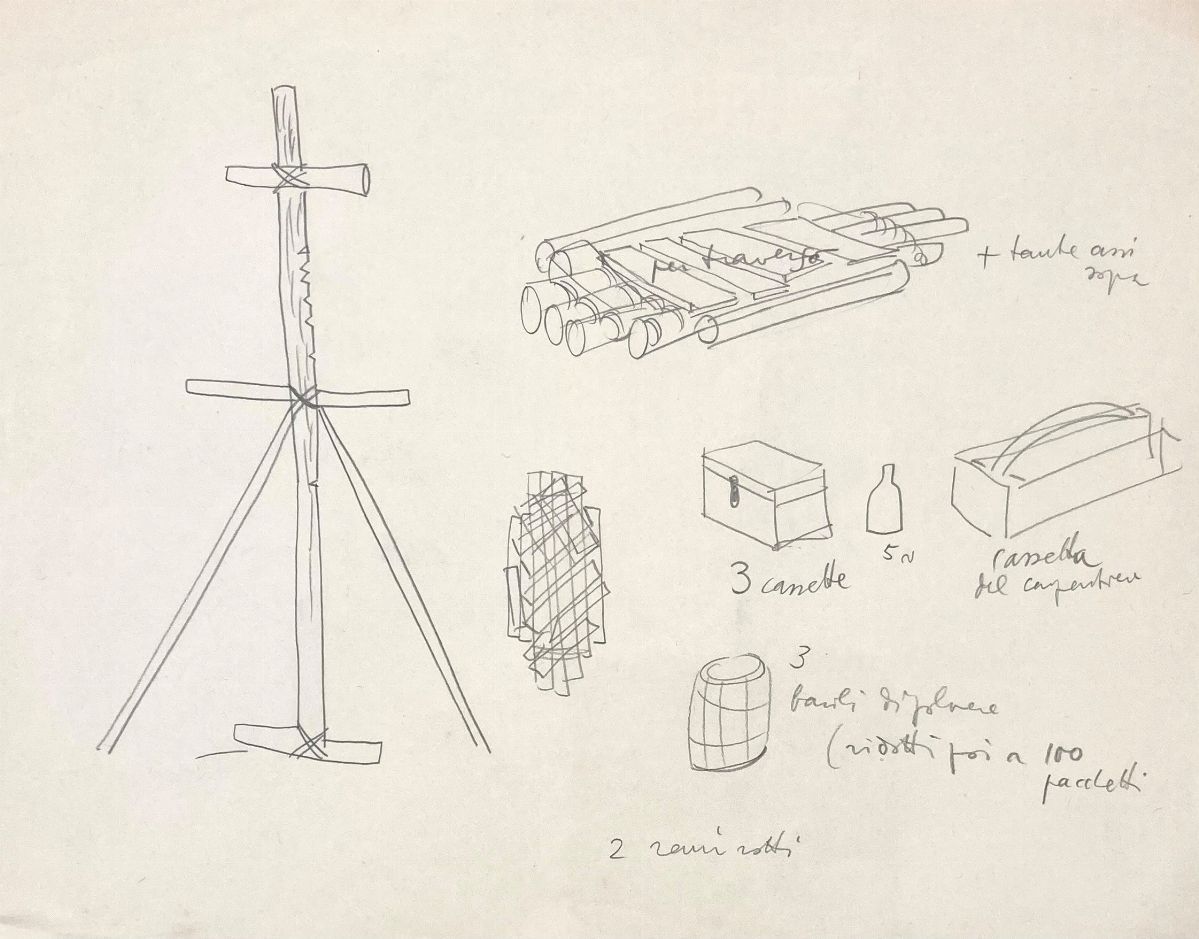 per traverso
+ tante assi
sopra
3 cassette
5
cassetta
del carpentiere
3
barili di polvere
(ridotti poi a 100
pacchetti
2 remi rotti